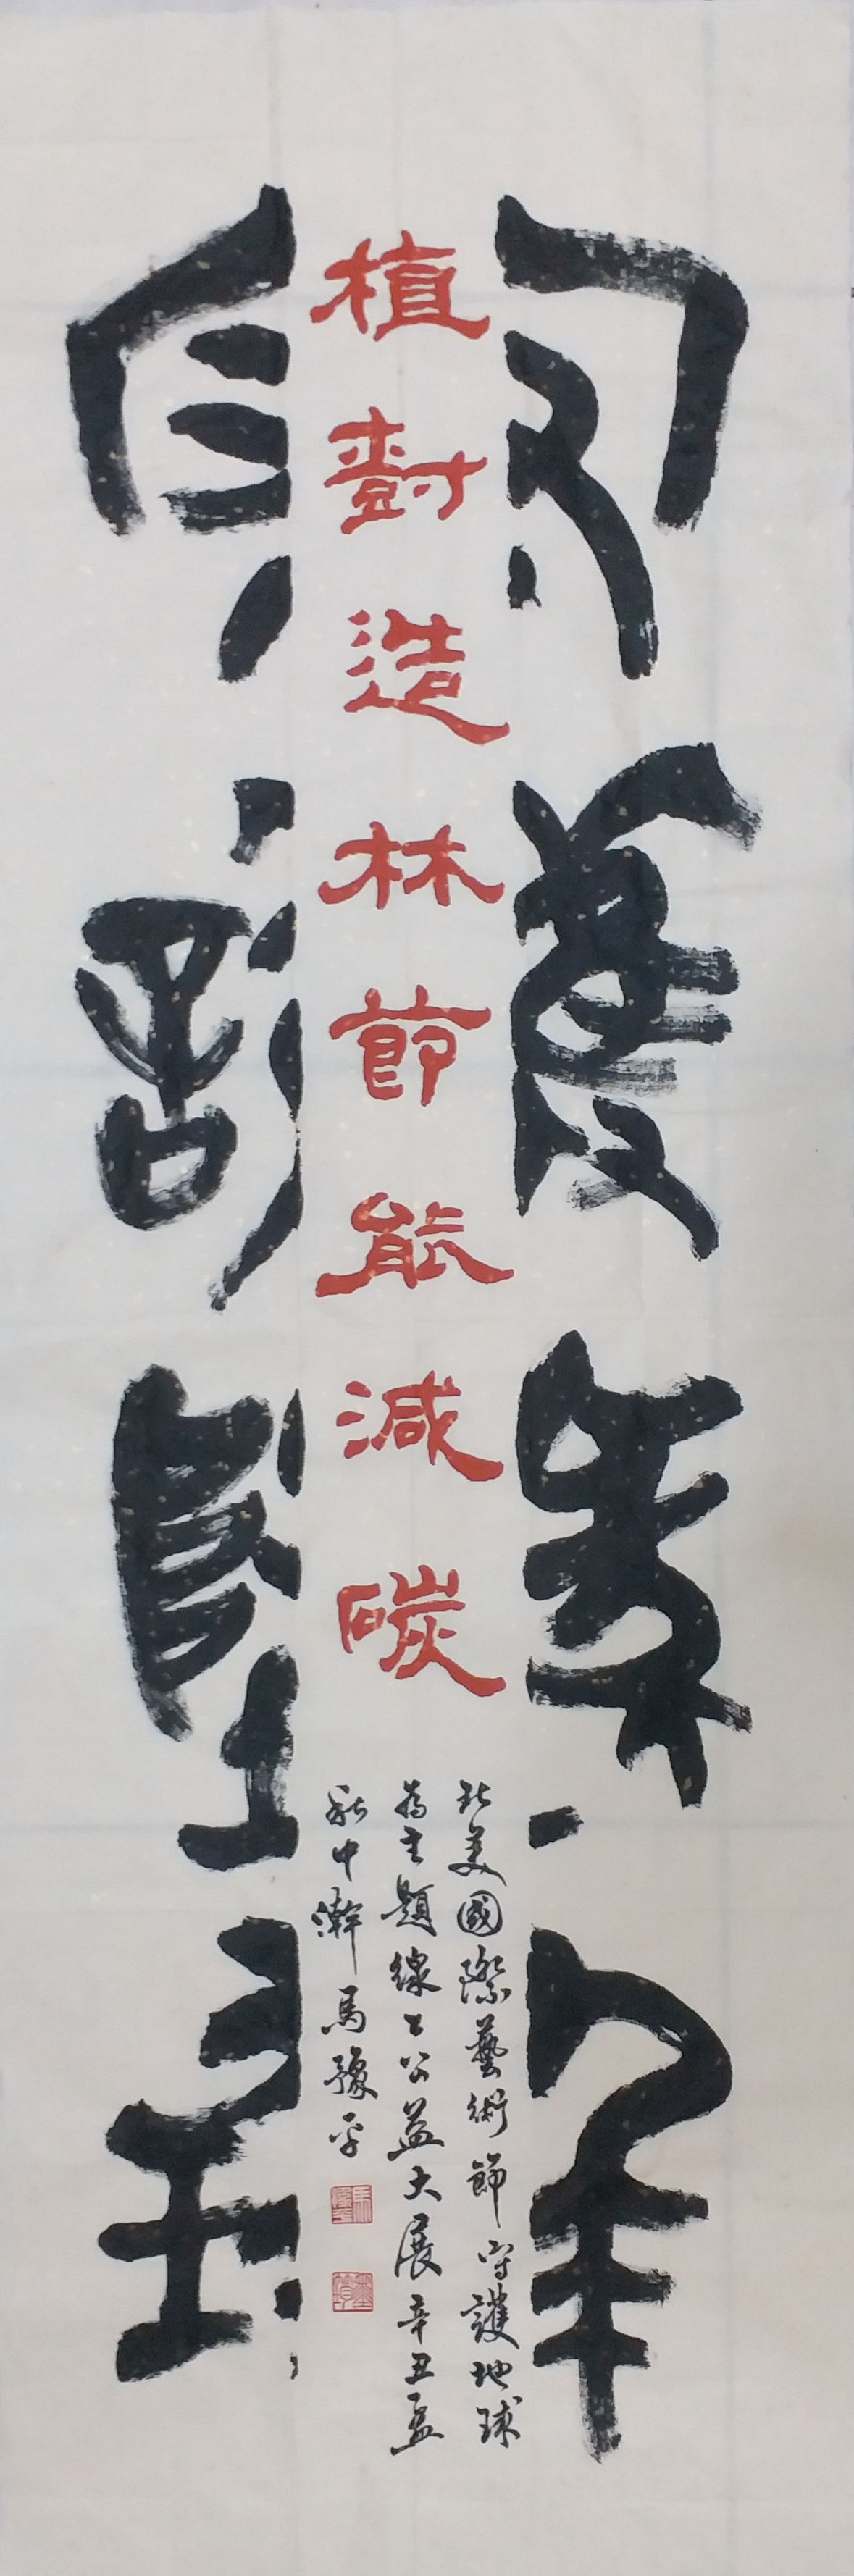 守護地球
植樹造林節能減碳
北美國際藝術節守護地球
為主題線上公益大展辛丑孟
秋中澣馬豫平